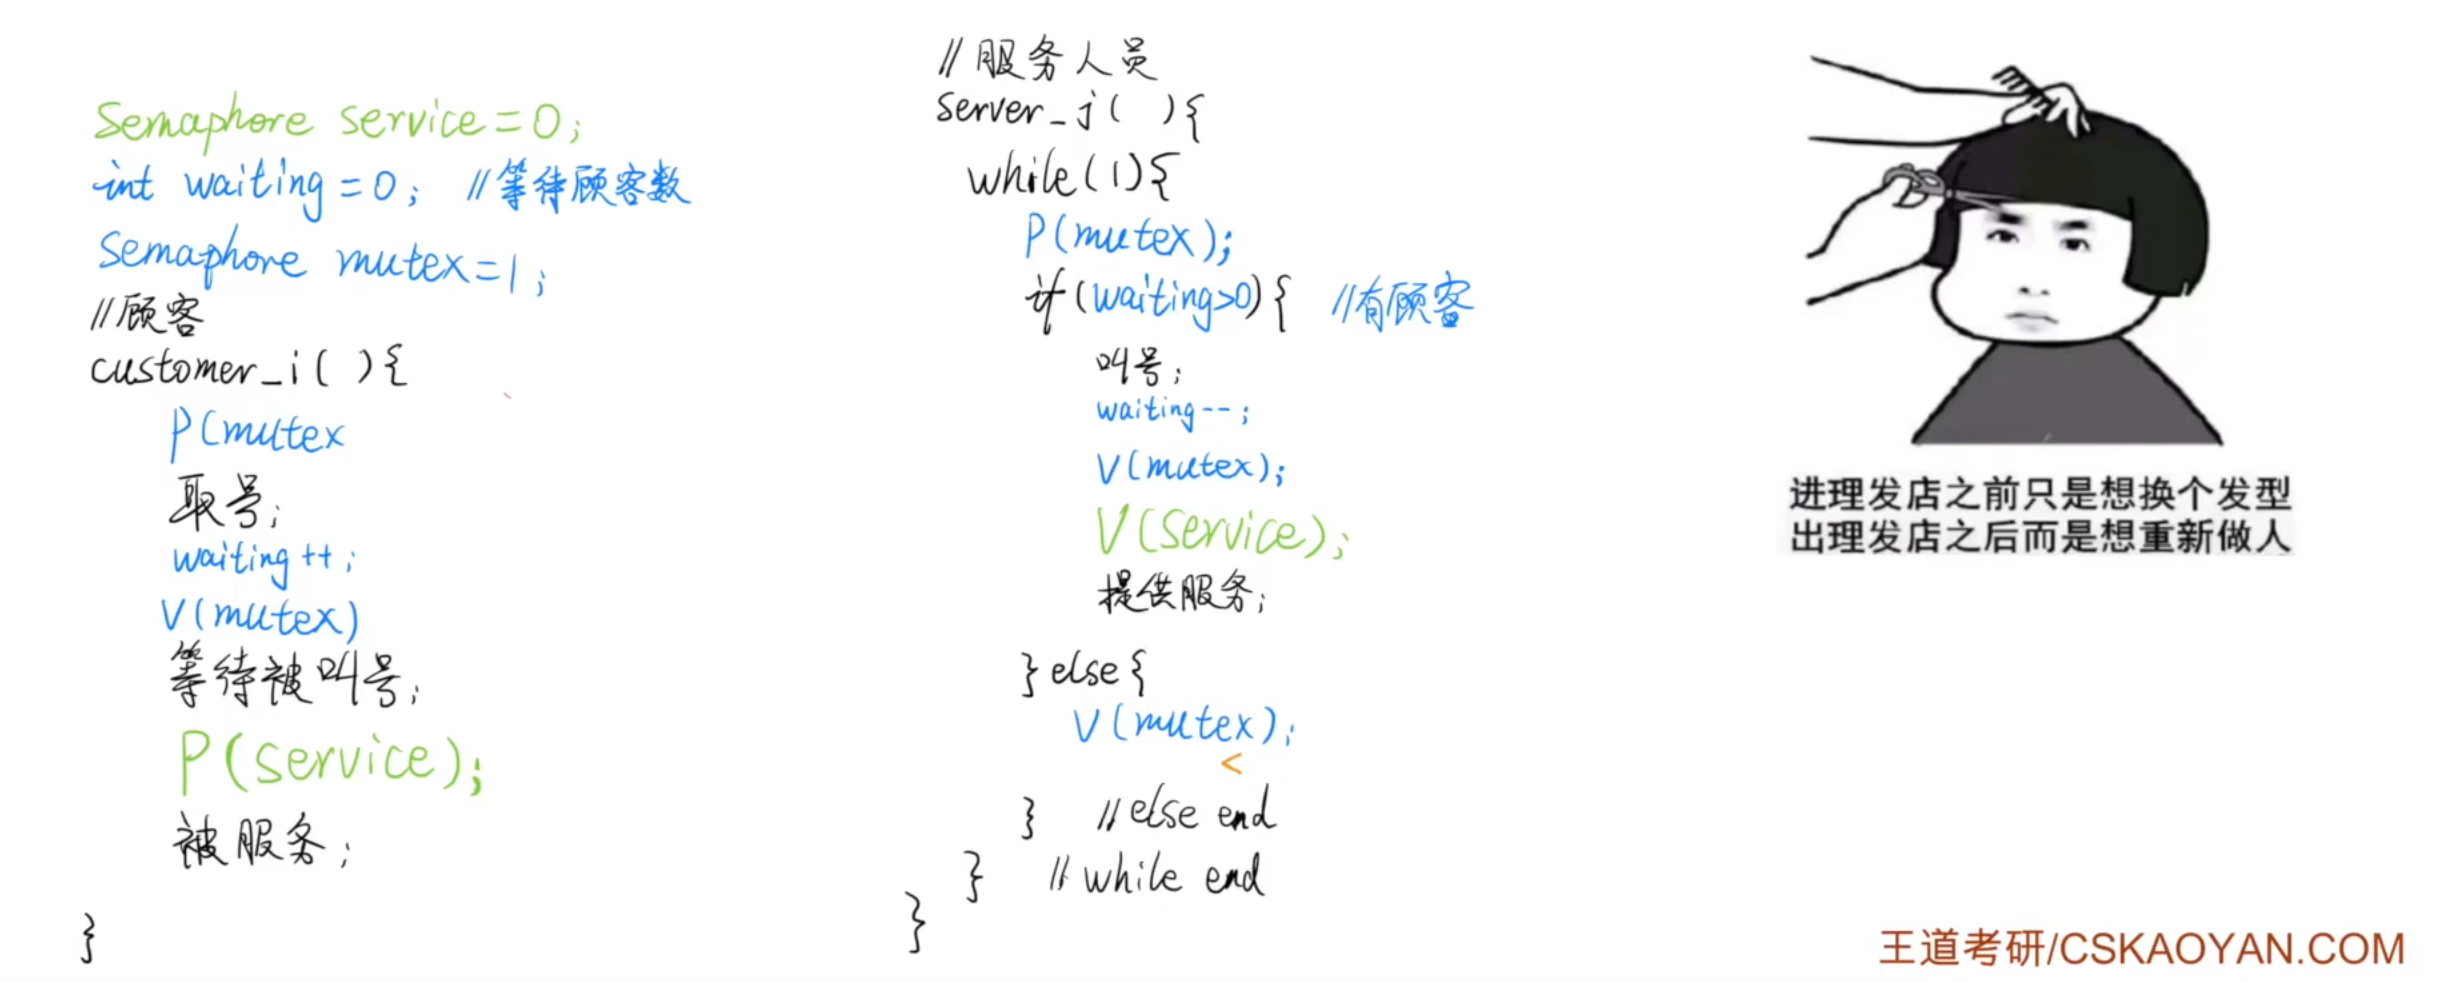 Semaphore service=0;
int waiting=0; //等待顾客数
Semaphore mutex=1;
//顾客
customer_i( ){
P(mutex
取号;
waiting++;
V(mutex)
等待被叫号;
P(service);
被服务;
}
//服务人员
server_j( ){
while(1){
P(mutex);
if(waiting>0){ //有顾客
叫号;
waiting--;
V(mutex);
V(service);
提供服务;
}else{
V(mutex);
<
} //else end
} //while end
}
进理发店之前只是想换个发型
出理发店之后而是想重新做人
王道考研/CSKAOYAN.COM